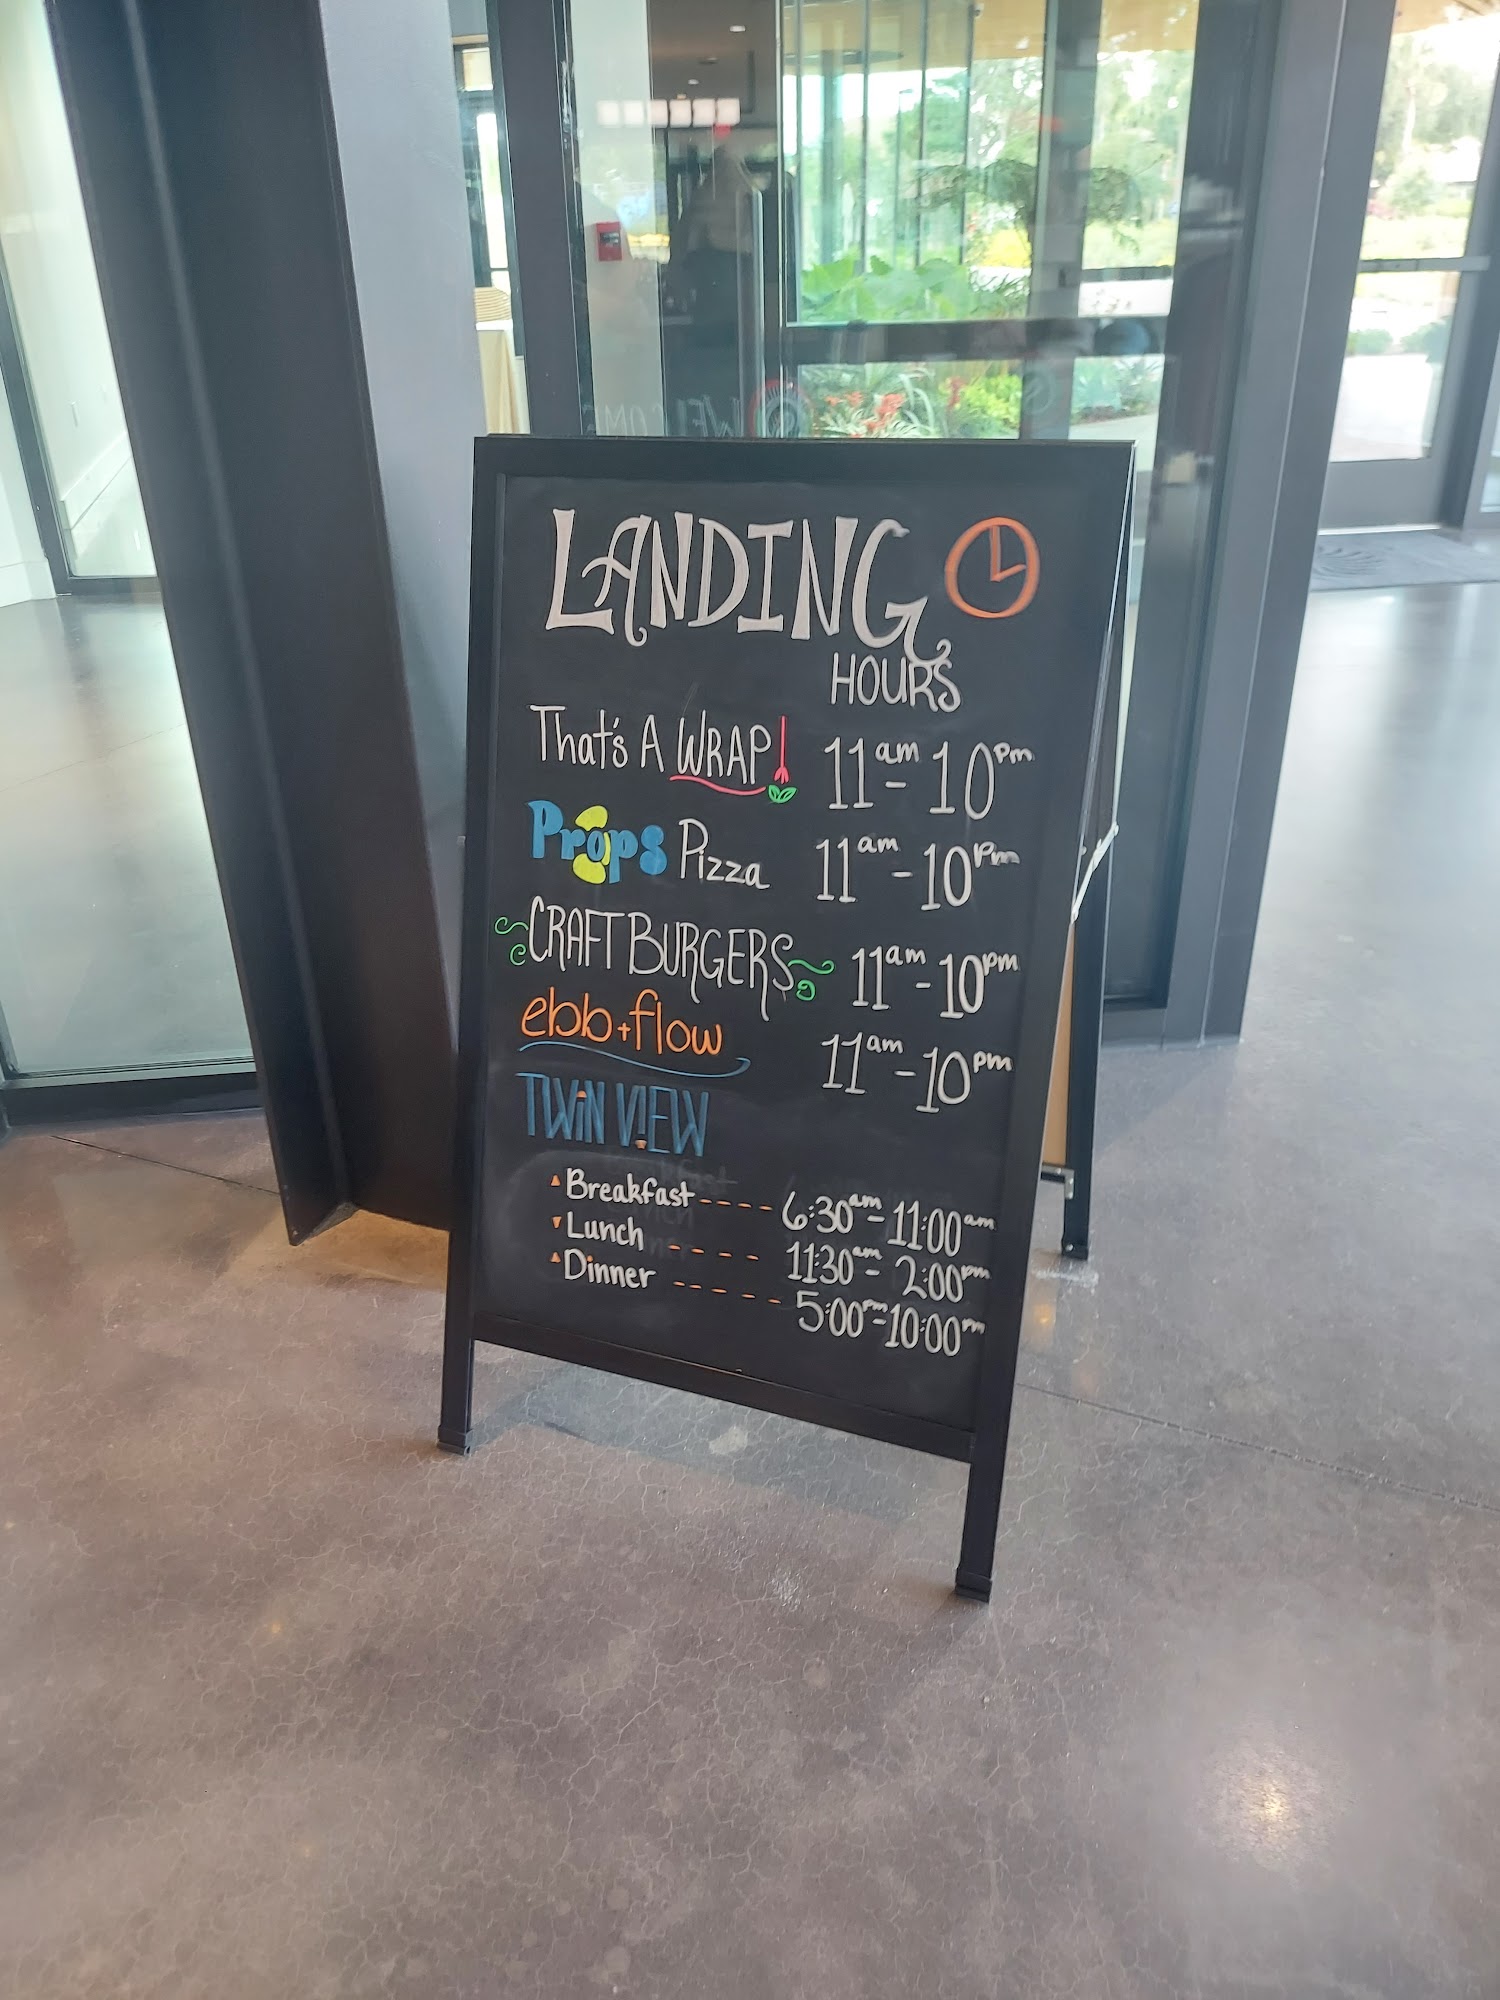 WELCOME
LANDING
HOURS
That's A WRAP! 11am - 10pm
Props Pizza 11am - 10pm
CRAFT BURGERS 11am - 10pm
ebb+flow 11am - 10pm
TWiN ViEW
Breakfast ---- 6:30am - 11:00am
Lunch ---- 11:30am - 2:00pm
Dinner ----- 5:00pm - 10:00pm